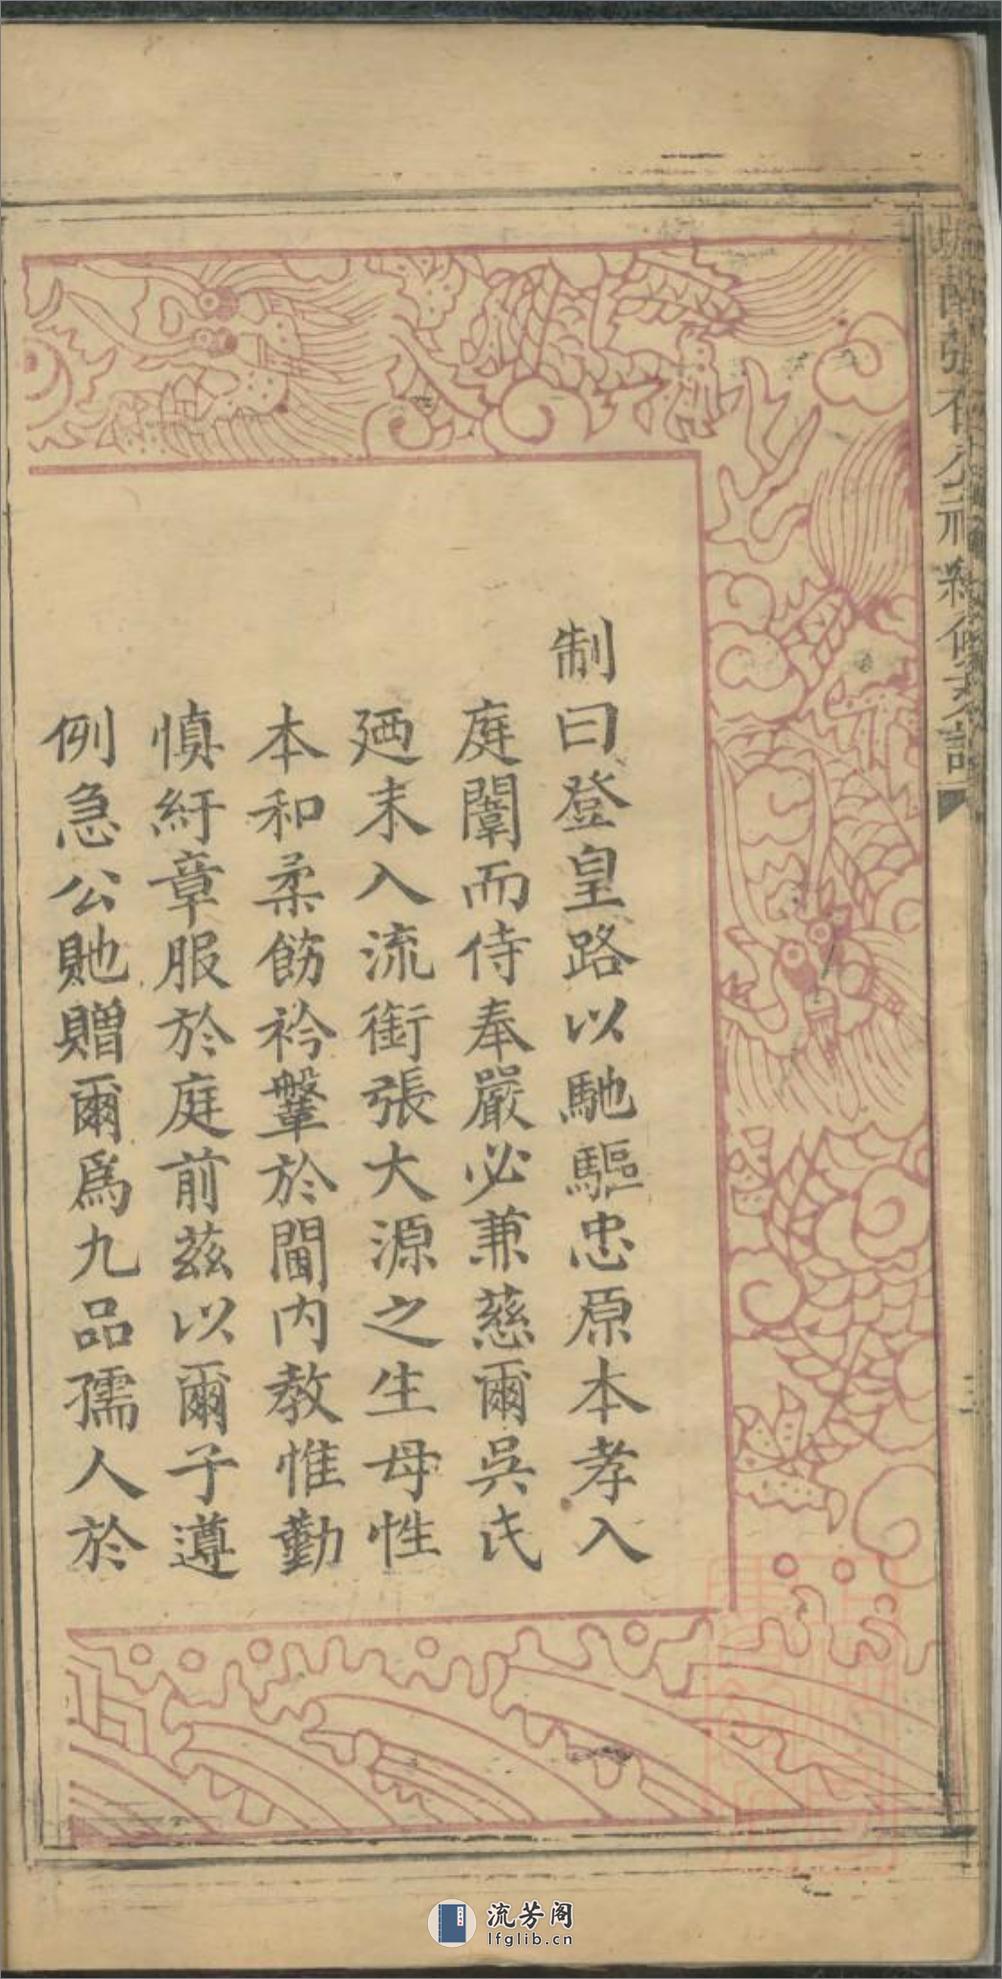 制曰登皇路以馳驅忠原本孝入
庭闈而侍奉嚴必兼慈爾吳氏
廼未入流銜張大源之生母性
本和柔飭衿鞶於閫内教惟勤
慎紆章服於庭前茲以爾子遵
例急公貤贈爾爲九品孺人於
流芳阁
lfglib.cn